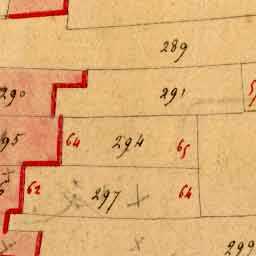 289
290 291
295 64 294 65
62 297 64
299